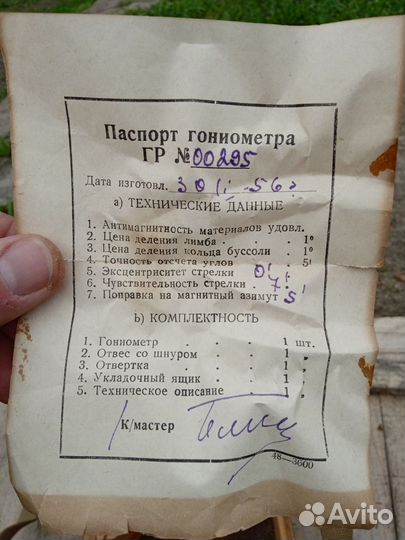 Паспорт гониометра
ГР № 00295
Дата изготовл. 30/I-56г
а) ТЕХНИЧЕСКИЕ ДАННЫЕ
1. Антимагнитность материалов удовл.
2. Цена деления лимба . . . 1°
3. Цена деления кольца буссоли . 1°
4. Точность отсчета углов . . 5'
5. Эксцентриситет стрелки 0'
6. Чувствительность стрелки . 7'
7. Поправка на магнитный азимут 5'
b) КОМПЛЕКТНОСТЬ
1. Гониометр . . . 1 шт.
2. Отвес со шнуром . . 1 "
3. Отвертка . . . 1 "
4. Укладочный ящик . . 1 "
5. Техническое описание . 1 "
К/мастер
48—3600
Avito